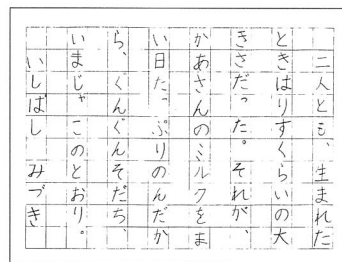 二人とも、生まれた
ときはりすくらいの大
きさだった。それが、
かあさんのミルクをま
い日たっぷりのんだか
ら、ぐんぐんそだち、
いまじゃこのとおり。
いしばし みづき